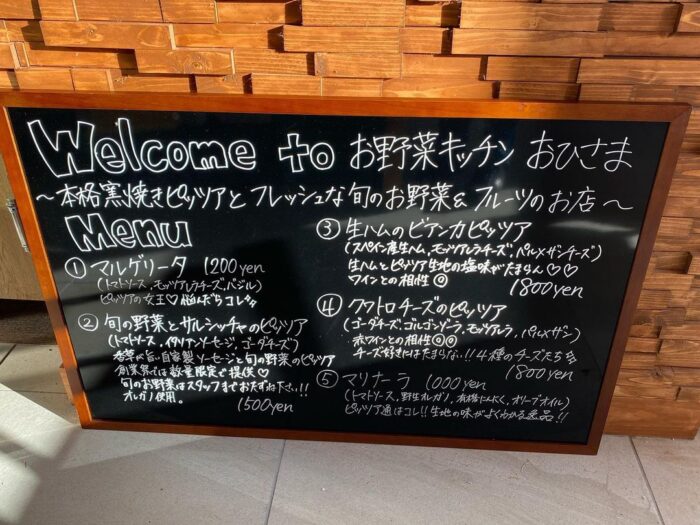 Welcome to お野菜キッチン おひさま
～本格窯焼きピッツアとフレッシュな旬のお野菜&フルーツのお店～
Menu
① マルゲリータ 1200yen
(トマトソース、モッツァレラチーズ、バジル)
ピッツアの女王♡ 悩んだらコレ
② 旬の野菜とサルシッチャのピッツア
(トマトソース、イタリアンソーセージ、ゴーダチーズ)
香草が旨い自家製ソーセージと旬の野菜のピッツア
創業祭では数量限定で提供♡
旬のお野菜はスタッフまでおたずね下さい!!
オレガノ使用。
1500yen
③ 生ハムのビアンカピッツア
(スペイン産生ハム、モッツァレラチーズ、パルメザンチーズ)
生ハムとピッツア生地の塩味がたまらん♡♡
ワインとの相性◎
1800yen
④ クワトロチーズのピッツア
(ゴーダチーズ、ゴルゴンゾーラ、モッツァレラ、パルメザン)
赤ワインとの相性◎◎
チーズ好きにはたまらない!! 4種のチーズたち
1800yen
⑤ マリナーラ 1000yen
(トマトソース、野生オレガノ、有機にんにく、オリーブオイル)
ピッツア通はコレ!! 生地の味がよくわかる逸品!!